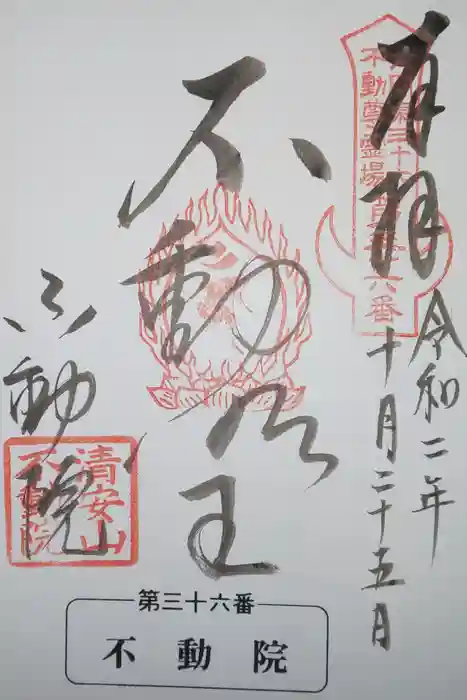 奉拝
令和二年
十月二十五日
北関東三十六
不動尊霊場第三十六番
不動明王
不動院
清安山
不動院
第三十六番
不動院